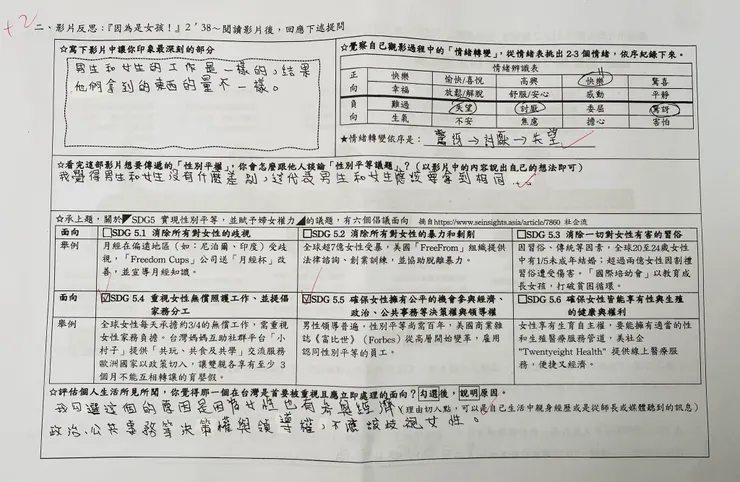 +2
二、影片反思：『因為是女孩！』2’38~閱讀影片後，回應下述提問
☆寫下影片中讓你印象最深刻的部分
男生和女生的工作是一樣的，結果
他們拿到的東西的量不一樣。
☆覺察自己觀影過程中的「情緒轉變」，從情緒表挑出2-3個情緒，依序紀錄下來。
情緒辨識表
正向 快樂 愉快/喜悅 高興 快樂 驚喜
幸福 放鬆/解脫 舒服/安心 感動 平靜
負向 難過 失望 討厭 委屈 驚訝
生氣 不安 焦慮 擔心 害怕
★情緒轉變依序是：驚訝→討厭→失望
☆看完這部影片想要傳遞的「性別平權」，你會怎麼跟他人談論「性別平等議題」？（以影片中的內容說出自己的想法即可）
我覺得男生和女生沒有什麼差別，這代表男生和女生應該要拿到相同
☆承上題，關於◤SDG5 實現性別平等，並賦予婦女權力◢的議題，有六個倡議面向 摘自https://www.seinsights.asia/article/7860 社企流
面向 □SDG 5.1 消除所有對女性的歧視
□SDG 5.2 消除所有對女性的暴力和剝削
□SDG 5.3 消除一切對女性有害的習俗
舉例 月經在偏遠地區（如：尼泊爾、印度）受歧
視，「Freedom Cups」公司送「月經杯」改
善，並宣導月經知識。
全球超7億女性受暴，美國「FreeFrom」組織提供
法律諮詢、創業訓練，並協助脫離暴力。
因習俗、傳統等因素，全球20至24歲女性
中有1/5未成年結婚；超過兩億女性因割禮
習俗遭受傷害。「國際培幼會」以教育成
長女孩，打破貧困循環。
面向 ☑SDG 5.4 重視女性無償照護工作，並提倡
家務分工
☑SDG 5.5 確保女性擁有公平的機會參與經濟、
政治、公共事務等決策權與領導權
□SDG 5.6 確保女性皆能享有性與生殖
的健康與權利
舉例 全球女性每天承擔約3/4的無償工作，需重視
女性家務負擔。台灣媽媽互助社群平台「小
村子」提供「共玩、共食及共學」交流服務
歐洲國家以政策切入，讓雙親各享有至少 3
個月不能互相轉讓的育嬰假。
男性領導普遍，性別平等尚需百年，美國商業雜
誌《富比世》（Forbes）從高層開始變革，雇用
認同性別平等的員工。
女性享有生育自主權，要能擁有適當的性
和生殖醫療服務管道，美社企
"Twentyeight Health" 提供線上醫療服
務，便捷又經濟。
☆評估個人生活所見所聞，你覺得那一個在台灣是首要被重視且應立即處理的面向？勾選後，說明原因。
我勾選這個的原因是因為女性也有參與經濟
（理由切入點，可以是自己生活中親身經歷或是從師長或媒體聽到的訊息）
政治、公共事務等決策權與領導權，不應該歧視女性。